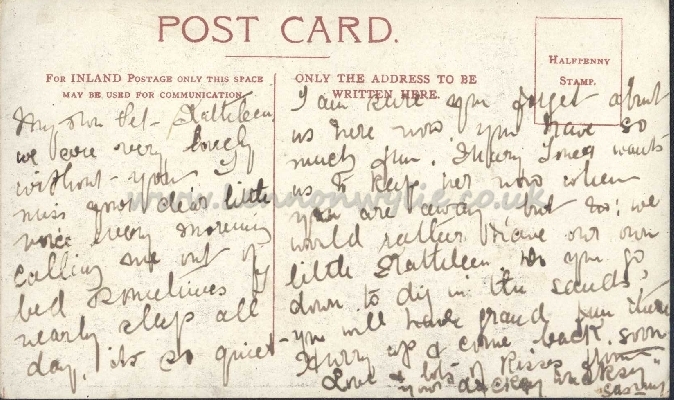 POST CARD.
FOR INLAND POSTAGE ONLY THIS SPACE
MAY BE USED FOR COMMUNICATION.
ONLY THE ADDRESS TO BE
WRITTEN HERE.
HALFPENNY
STAMP.
My own Pet - Kathleen
we are very lonely
without you I
miss your dear little
voice every morning
calling me out of
bed sometimes I
nearly sleep all
day, its so quiet -
I am sure you forget about
us here now you have so
much fun. Mary Jones wants
us to keep her now when
you are away but no; we
would rather have our own
little Kathleen. do you go
down to dig in the sands,
you will have grand fun there
Hurry up & come back soon
Love & lots of Kisses from
your